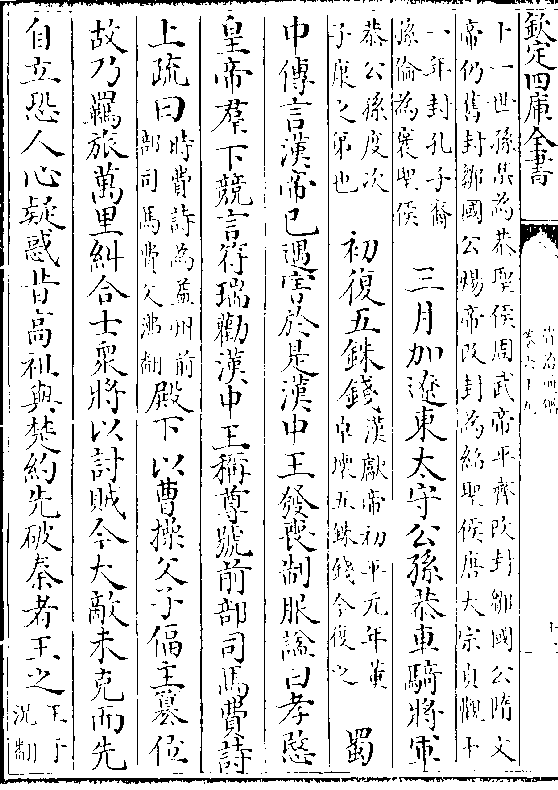 欽定四庫全書
資治通鑑
卷六十九
十一
卜一世孫渠為恭聖侯周武帝平齊改封鄒國公隋文
帝仍舊封鄒國公煬帝改封為紹聖侯唐太宗貞觀十
一年封孔子裔
孫倫為褒聖侯
三月加遼東太守公孫恭車騎將軍
恭公孫度次
子康之弟也
初復五銖錢
漢獻帝初平元年董
卓壞五銖錢今復之
蜀
中傳言漢帝已遇害於是漢中王發喪制服諡曰孝愍
皇帝羣下競言符瑞勸漢中王稱尊號前部司馬費詩
上疏曰
時費詩為益州前
部司馬費父沸翻
殿下以曹操父子偪主簒位
故乃羈旅萬里糾合士衆將以討賊今大敵未克而先
自立恐人心疑惑昔高祖與楚約先破秦者王之
王于
況翻